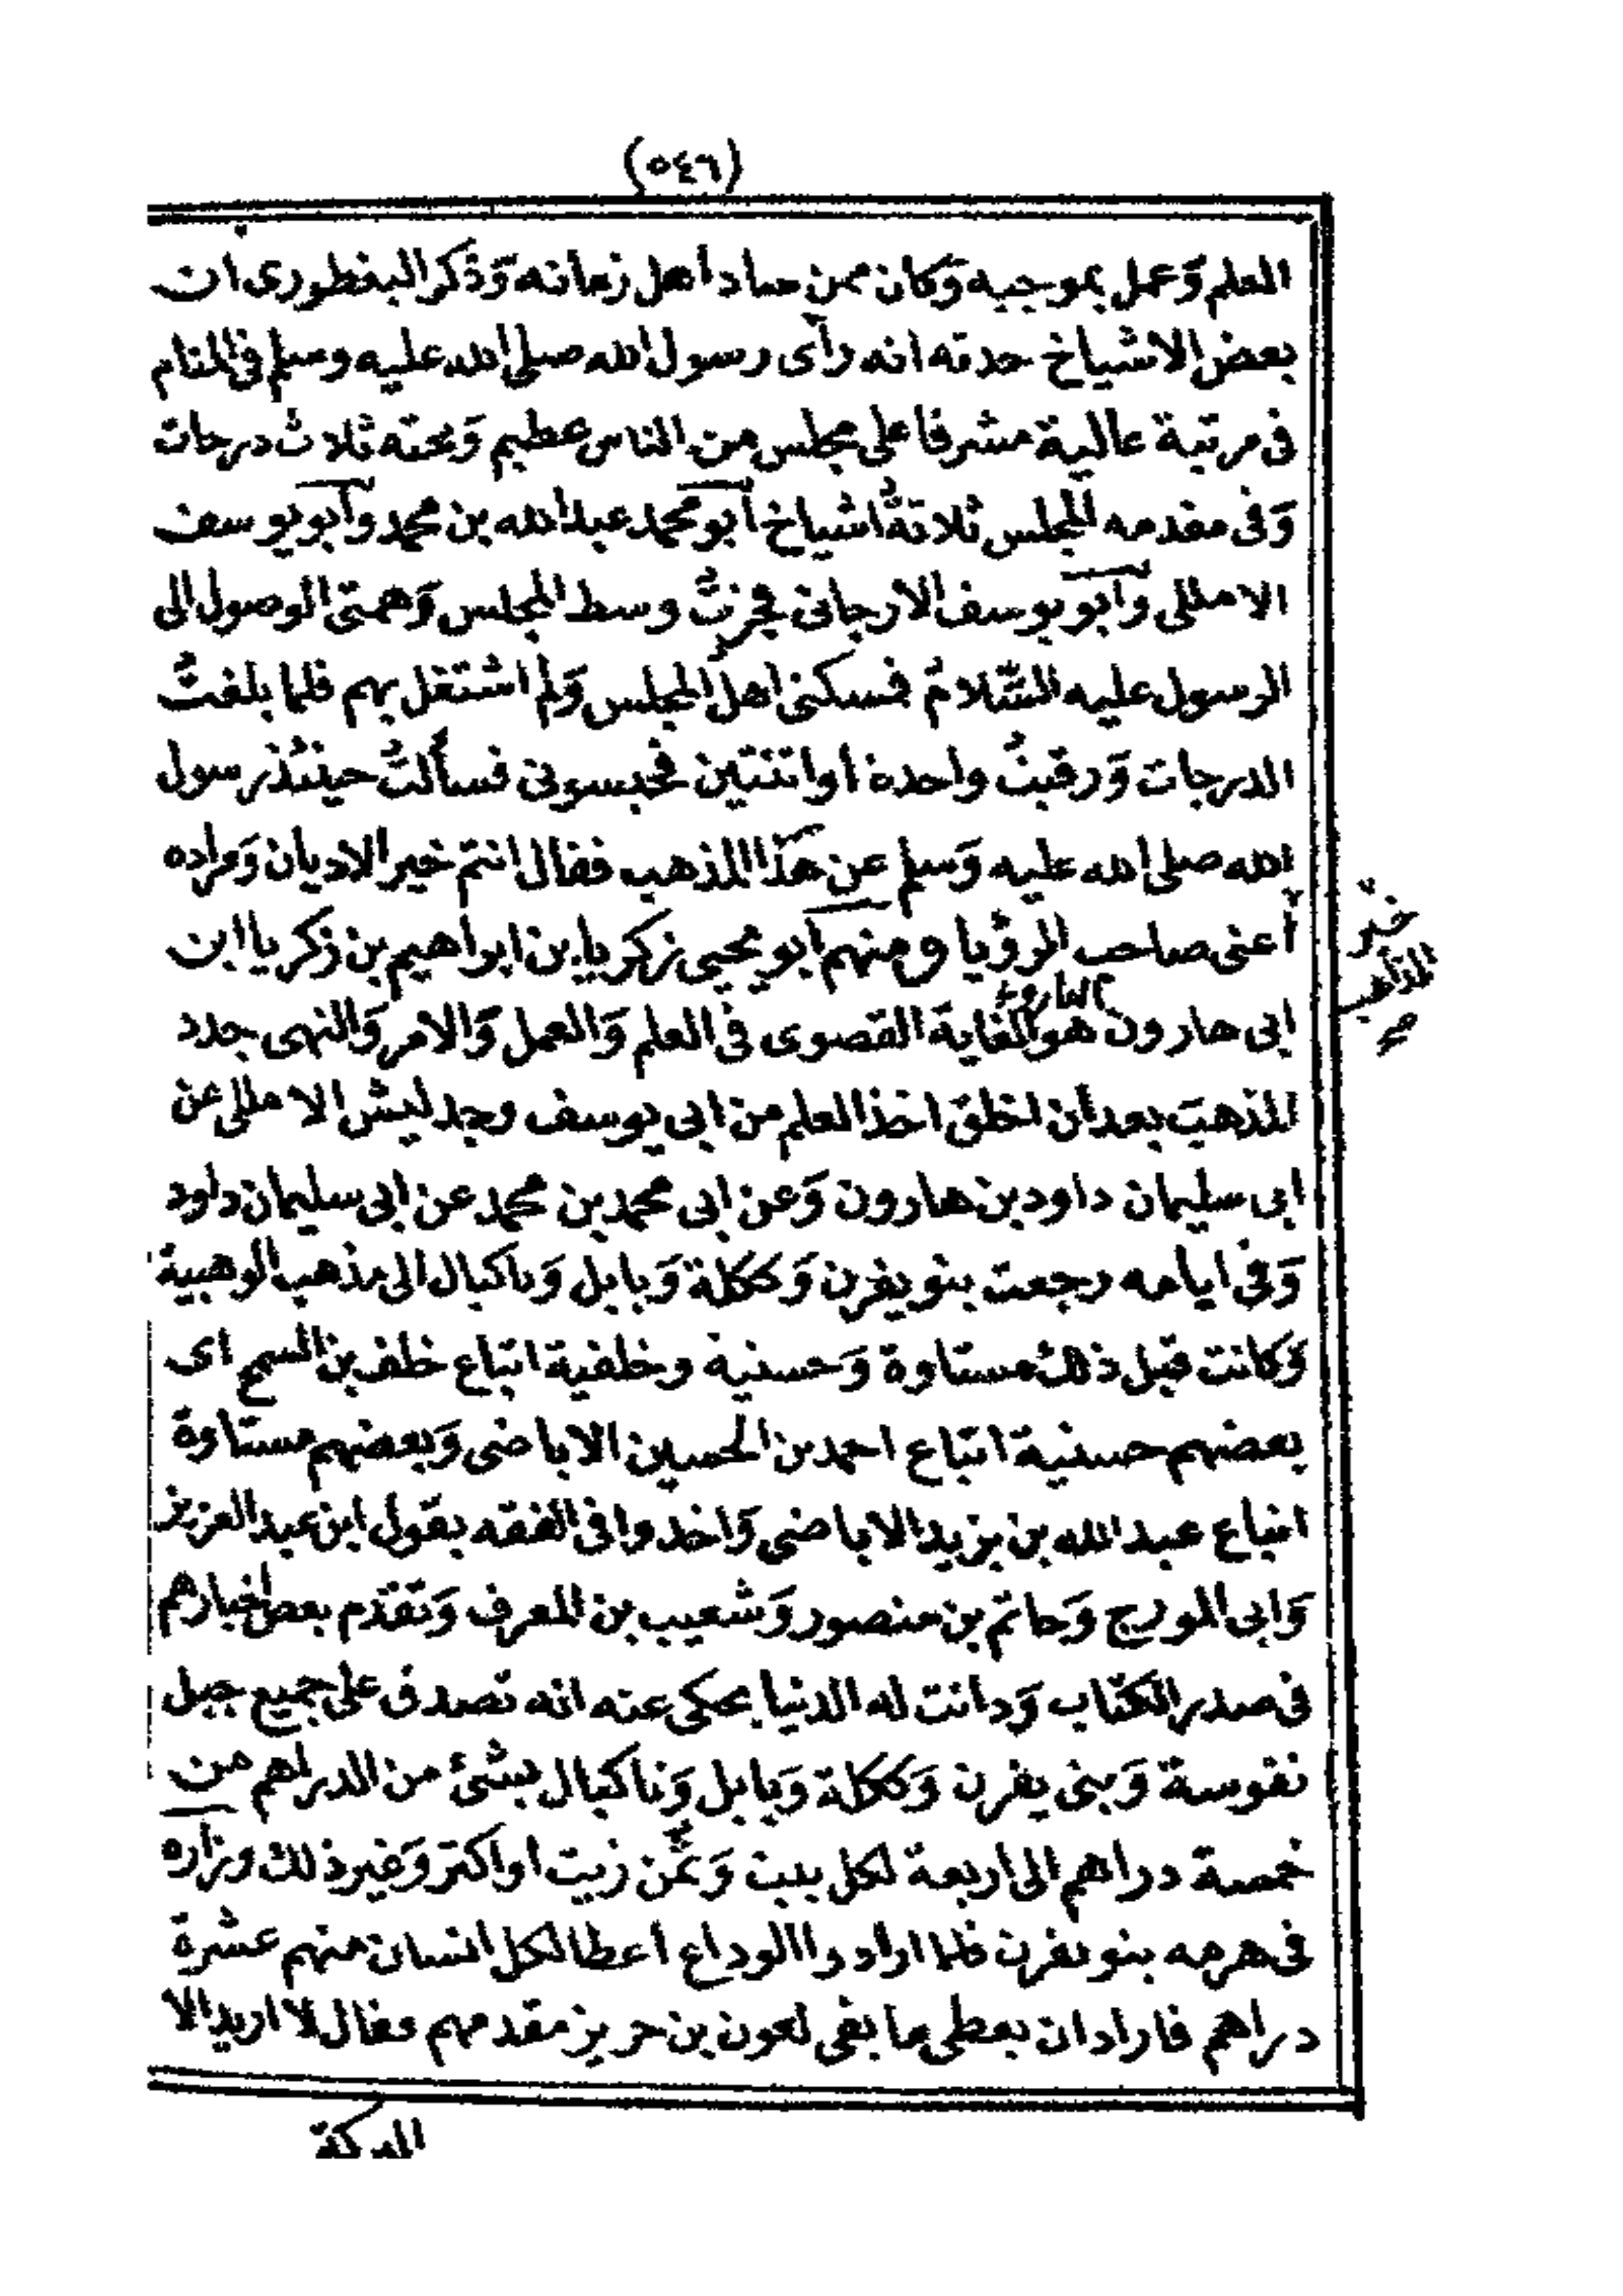 (٥٤٦)
العلم وَعمل بموجبه وَكان ممن ساد أهل زمانه وَذكر البغطورى ان
بعض الاشياخ حدثه انه رأى رسول الله صلى الله عليه وسلم فى المنام
فى مرتبة عالية مشرفا على مجلس من الناس عظيم وَتحته ثلاث درجات
وَفى مقدمه المجلس ثلاثةُ اشياخ أبو محمد عبد الله بن محمد وأبو يوسف
الامللى وأبو يوسف الارجانى فجزتُ وسط المجلس وَهمتى الوصول الى
الرسول عليه السَّلامُ فمسكنى اهل المجلس وَلم اشتغل بهم فلما بلغتُ
الدرجات وَرقيتُ واحدة او اثنتين فحبسونى فسألتُ حينئذ رسول
الله صلى الله عليه وَسلم عن هذا المذهب فقال انتم خير الاديان وَمراده
أعنى صاحب الرؤيا ومنهم أبو يحيى زكريا بن ابراهيم بن زكريا ابن
ابى هارون هو الغاية القصوى فى العلم وَالعمل وَالامر وَالنهى جدد
المذهبَ بعد أن اخلقَ اخذ العلم من ابى يوسف وجدليش الامللى عن
ابى سليمان داود بن هارون وَعن ابى محمد بن محمد عن ابى سليمان داود
وَفى ايامه رجعت بنو يفرن وَككلة وَبابل وَناكبال الى مذهب الوهبية
وَكانت قبل ذلك مستاوة وَحسنية وخلفية اتباع خلف بن السمح اى
بعضهم حسنية اتباع احمد بن الحسين الاباضى وَبعضهم مستاوة
اتباع عبد الله بن يزيد الاباضى وَاخذوا فى الفقه بقول ابن عبد العزيز
وَابى المورج وَحاتم بن منصور وَشعيب بن المعرف وَتقدم بعض اخبارهم
فى صدر الكتاب وَدانت له الدنيا يحكى عنه انه تصدق على جميع جبل
نفوسة وَبنى يفرن وَككلة وَبابل وَناكبال بشئ من الدراهم من
خمسة دراهم الى اربعة لكل بيت وَثُمُن زيت او اكثر وَغير ذلك وزاره
فى هرمه بنو يفرن فلما ارادوا الوداع اعطا لكل انسان منهم عشرة
دراهم فاراد ان يعطى ما بقى لعون بن حريز مقدمهم فقال لا اريد الا
خير
المذاهب